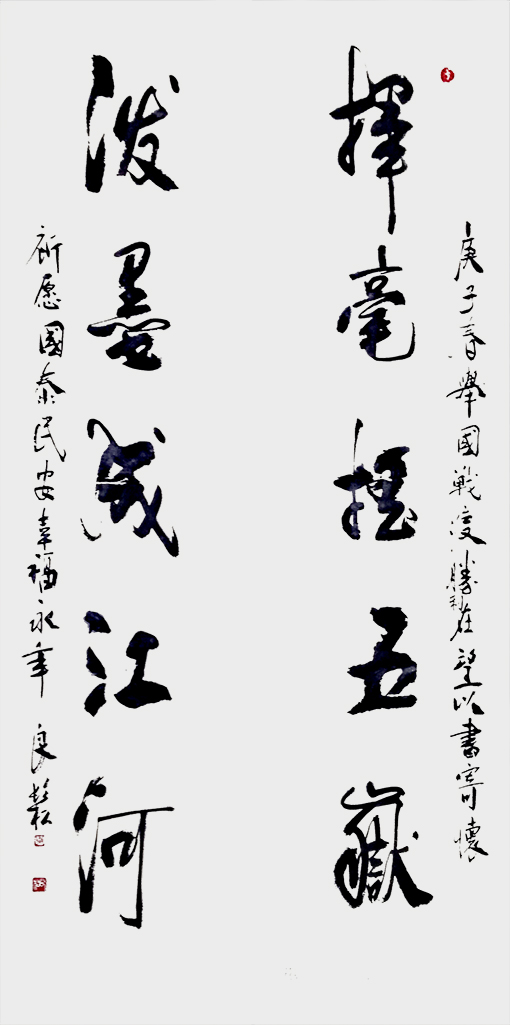 庚子春舉國戰疫勝利在望以書寄懷
揮毫搖五嶽
潑墨成江河
祈愿國泰民安幸福永年 良鬆